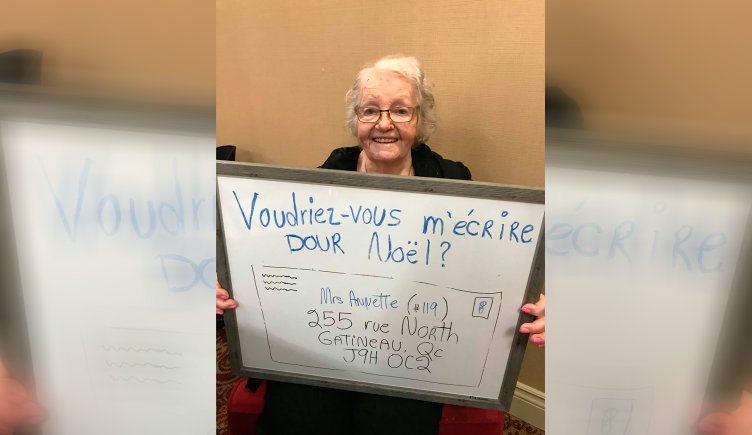 Voudriez-vous m'écrire
pour Noël?
Mrs Annette (#119)
255 rue North
Gatineau, Qc
J9H 0C2